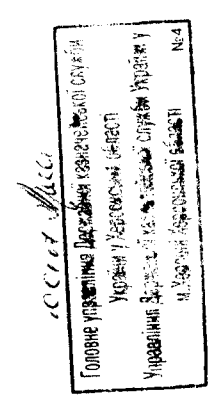 Головне управління Державної казначейської служби
України у Херсонській області
Управління Державної казначейської служби України у
м.Херсоні Херсонської області
№4